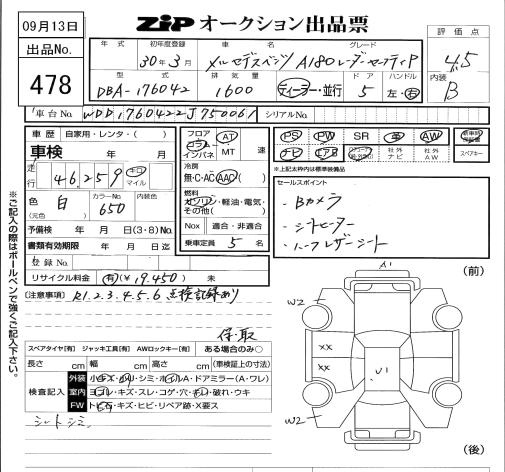 09月13日
ZiP オークション出品票
出品No.
478
年式 初年度登録 車名 グレード 評価点
30年3月 メルセデスベンツ A180 レーダーセーフティP 4.5
型式 排気量 ドア ハンドル 内装
DBA-176042 1600 ディーラー・並行 5 左・右 B
車台No. WDD1760422J750061 シリアルNo.
車歴 自家用・レンタ・( )
車検 年 月
走行 46,259 キロ マイル
色 白 カラーNo. 650 内装色
(元色)
予備検 年 月 日(3・8)No.
書類有効期限 年 月 日迄
登録No.
リサイクル料金 有(¥19,450) 未
フロア コラム インパネ AT MT 速
冷房
無・C・AC・AAC( )
燃料
ガソリン・軽油・電気・その他( )
Nox 適合・非適合
乗車定員 5 名
PS PW SR 革 AW 新車時保証書
ナビ エアB 社外ナビ 社外AW スペアキー
※上記太枠内は標準装備品
セールスポイント
・Bカメラ
・シートヒーター
・ハーフレザーシート
(注意事項) R1.2.3.4.5.6 点検記録あり
保・取
スペアタイヤ[有] ジャッキ工具[有] AWロックキー[有] ある場合のみ○
長さ cm 幅 cm 高さ cm (車検証上の寸法)
検査記入
外装 小キズ・凹・シミ・ホイルA・ドアミラー(A・ワレ)
室内 ヨゴレ・キズ・スレ・コゲ・穴・ヒビ・破れ・ウキ
FW トビ石・キズ・ヒビ・リペア跡・X要ス
シートシミ
※ご記入の際はボールペンで強くご記入下さい。
A1
(前)
W2
XX
XX
U1
W2
(後)